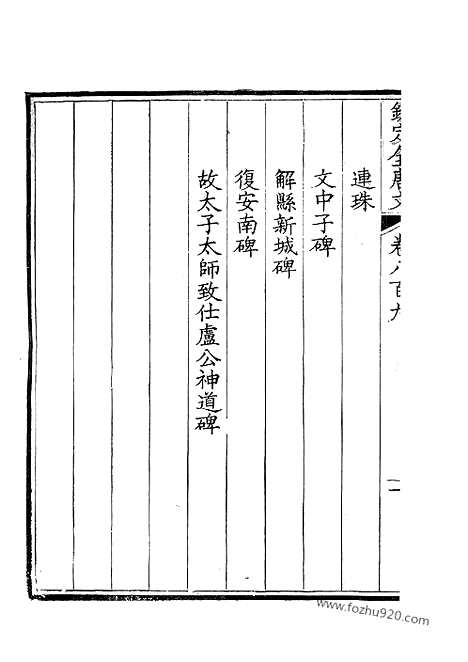 欽定全唐文 卷八百九 一
連珠
文中子碑
解縣新城碑
復安南碑
故太子太師致仕盧公神道碑
www.fozhu920.com